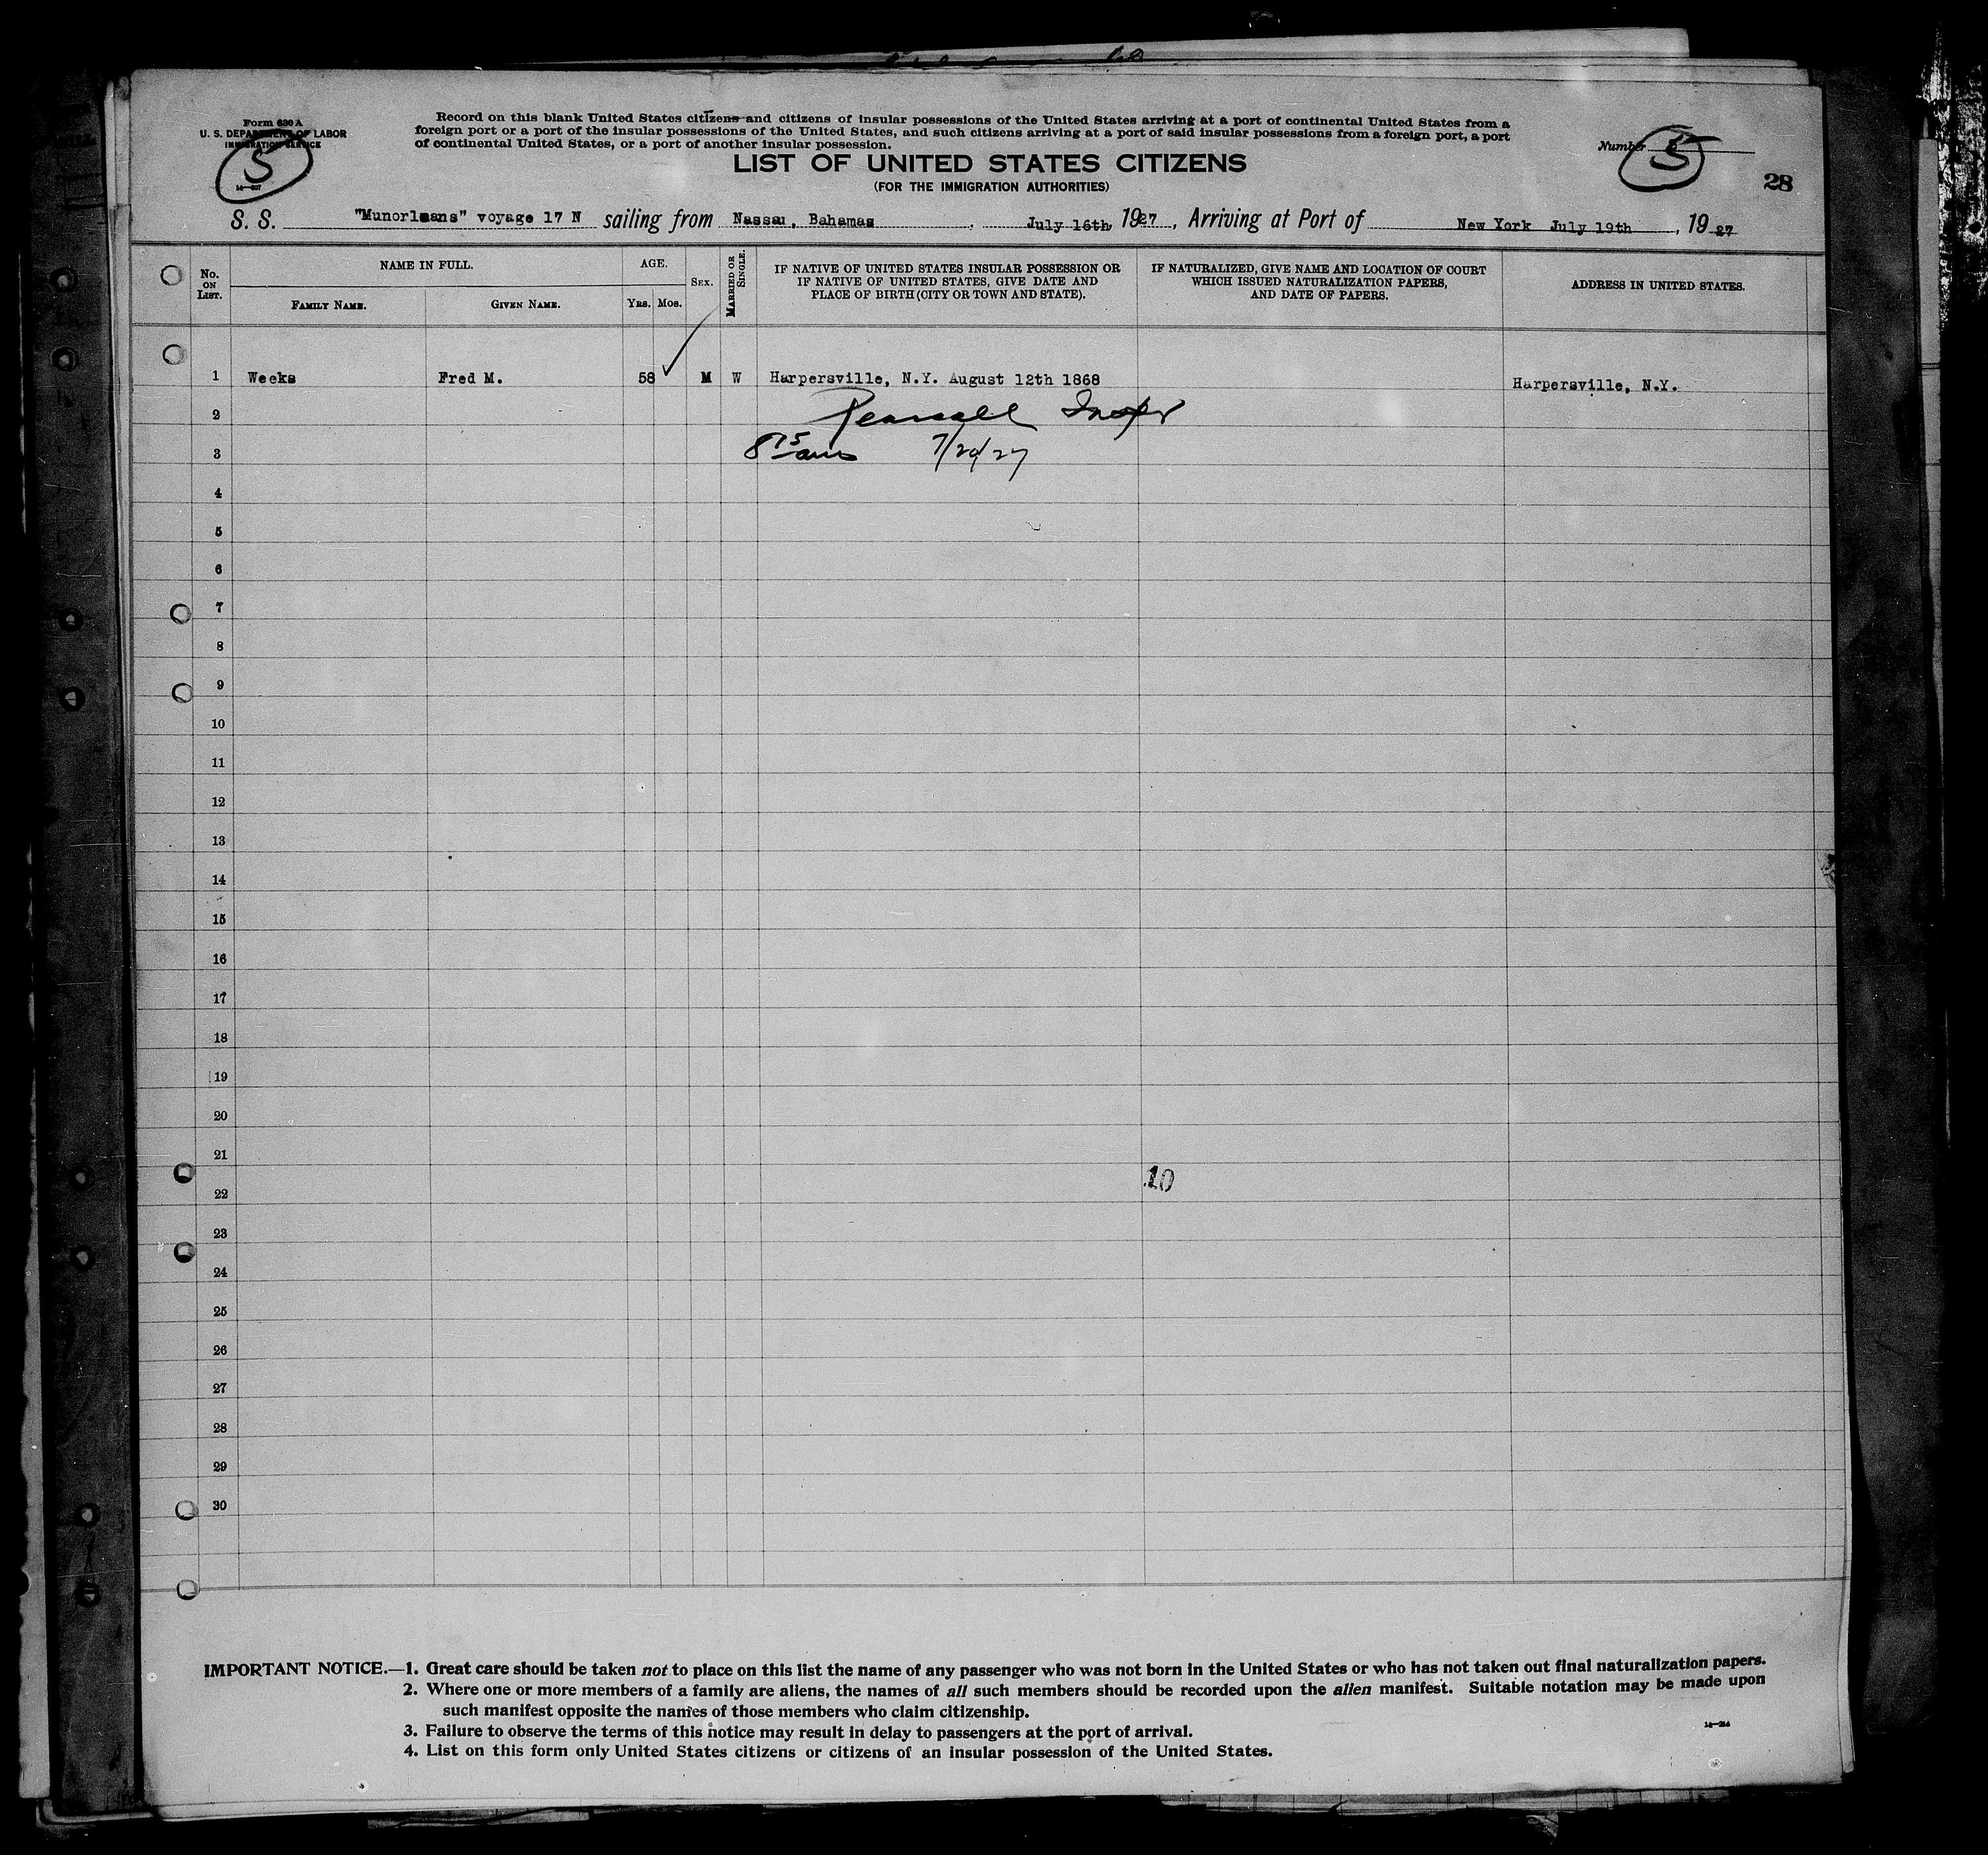 Form 630 A
U. S. DEPARTMENT OF LABOR
IMMIGRATION SERVICE
5
14—207
Record on this blank United States citizens and citizens of insular possessions of the United States arriving at a port of continental United States from a
foreign port or a port of the insular possessions of the United States, and such citizens arriving at a port of said insular possessions from a foreign port, a port
of continental United States, or a port of another insular possession.
Number 5
28
LIST OF UNITED STATES CITIZENS
(FOR THE IMMIGRATION AUTHORITIES)
S. S. "Munorleans" voyage 17 N sailing from Nassau, Bahamas, July 16th, 1927, Arriving at Port of New York July 19th, 1927
No. ON LIST.
NAME IN FULL.
FAMILY NAME.
GIVEN NAME.
AGE.
YRS. MOS.
SEX.
MARRIED OR SINGLE.
IF NATIVE OF UNITED STATES INSULAR POSSESSION OR
IF NATIVE OF UNITED STATES, GIVE DATE AND
PLACE OF BIRTH (CITY OR TOWN AND STATE).
IF NATURALIZED, GIVE NAME AND LOCATION OF COURT
WHICH ISSUED NATURALIZATION PAPERS,
AND DATE OF PAPERS.
ADDRESS IN UNITED STATES.
1 Weeks Fred M. 58 M W Harpersville, N.Y. August 12th 1868 Harpersville, N.Y.
2 Pearsall Inspr
3 8 15 am 7/20/27
4
5
6
7
8
9
10
11
12
13
14
15
16
17
18
19
20
21
10
22
23
24
25
26
27
28
29
30
IMPORTANT NOTICE.—1. Great care should be taken not to place on this list the name of any passenger who was not born in the United States or who has not taken out final naturalization papers.
2. Where one or more members of a family are aliens, the names of all such members should be recorded upon the alien manifest. Suitable notation may be made upon
such manifest opposite the names of those members who claim citizenship.
3. Failure to observe the terms of this notice may result in delay to passengers at the port of arrival.
14—214
4. List on this form only United States citizens or citizens of an insular possession of the United States.